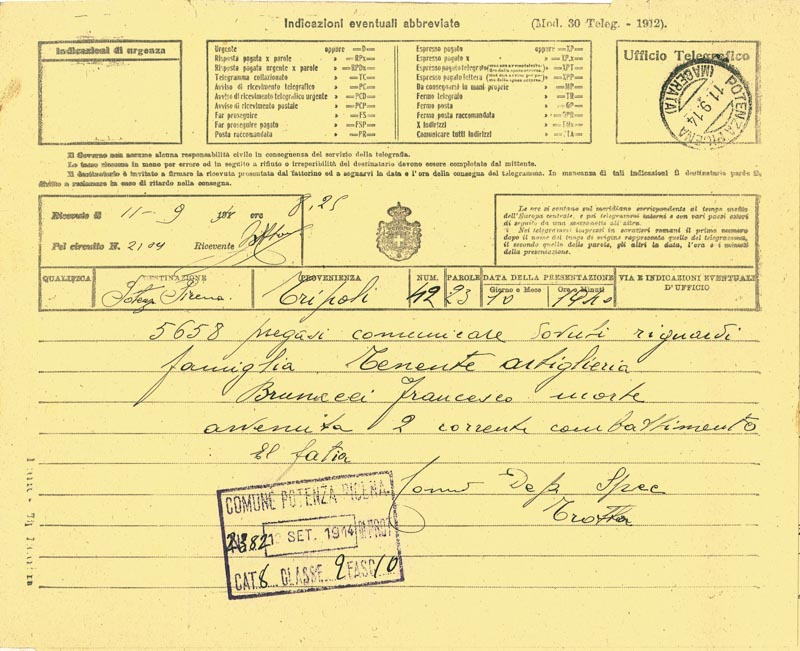 Indicazioni eventuali abbreviate
(Mod. 30 Teleg. - 1912).
Indicazioni di urgenza
Urgente oppure =D=
Risposta pagata x parole » =RPx=
Risposta pagata urgente x parole » =RPDx=
Telegramma collazionato » =TC=
Avviso di ricevimento telegrafico » =PC=
Avviso di ricevimento telegrafico urgente » =PCD=
Avviso di ricevimento postale » =PCP=
Far proseguire » =FS=
Far proseguire pagato » =FSP=
Posta raccomandata » =PR=
Espresso pagato oppure =XP=
Espresso pagato x »
Espresso pagato telegrafo » =XPT=
Espresso pagato lettera » =XPP=
Da consegnarsi in mani proprie » =MP=
Fermo telegrafo » =TR=
Fermo posta » =GP=
Fermo posta raccomandata » =GPR=
X indirizzi » =TMx=
Comunicare tutti indirizzi » =TA=
Ufficio Telegrafico
POTENZA PICENA
(MACERATA)
11.9.14
Il Governo non assume alcuna responsabilità civile in conseguenza del servizio della telegrafia.
Le tasse riscosse in meno per errore od in seguito a rifiuto o irreperibilità del destinatario devono essere completate dal mittente.
Il destinatario è invitato a firmare la ricevuta presentata dal fattorino ed a segnarvi la data e l'ora della consegna del telegramma. In mancanza di tali indicazioni il destinatario perde il
diritto a reclamare in caso di ritardo nella consegna.
Ricevuto il 11-9 191 ore 8,25
Pel circuito N. 2104 Ricevente
Le ore si contano sul meridiano corrispondente al tempo medio
dell'Europa centrale, e pei telegrammi interni e con vari paesi esteri
di seguito da una mezzanotte all'altra.
Nei telegrammi impressi in caratteri romani il primo numero
dopo il nome del luogo di origine rappresenta quello del telegramma,
il secondo quello delle parole, gli altri la data, l'ora e i minuti
della presentazione.
QUALIFICA DESTINAZIONE PROVENIENZA NUM. PAROLE DATA DELLA PRESENTAZIONE VIA E INDICAZIONI EVENTUALI
D'UFFICIO
Giorno e Mese Ora e Minuti
Potenza Picena Tripoli 42 23 10 1940
5658 pregasi comunicare dovuti riguardi
famiglia Tenente artiglieria
Brunacci Francesco morte
avvenuta 2 corrente combattimento
El fatia
Com Spec
Trotta
COMUNE POTENZA PICENA
12 SET. 1914 DI PROT
CAT. 8 CLASSE 2 FASC. 10